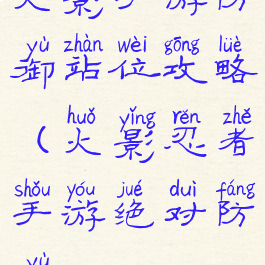 火影手游防
yù zhàn wèi gōng lüè
御站位攻略
huǒ yǐng rěn zhě
（火影忍者
shǒu yóu jué duì fáng
手游绝对防
yù